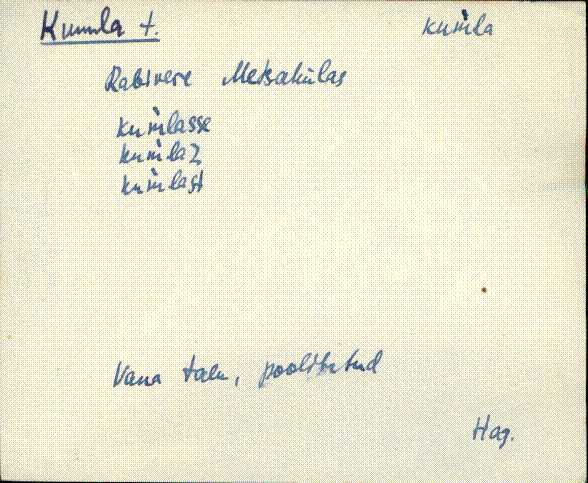 Kumla t. kum̀la
Rabivere Metsakülas
kum̀lasse
kum̀laz
kum̀last
Vana talu, poolitatud
Hag.